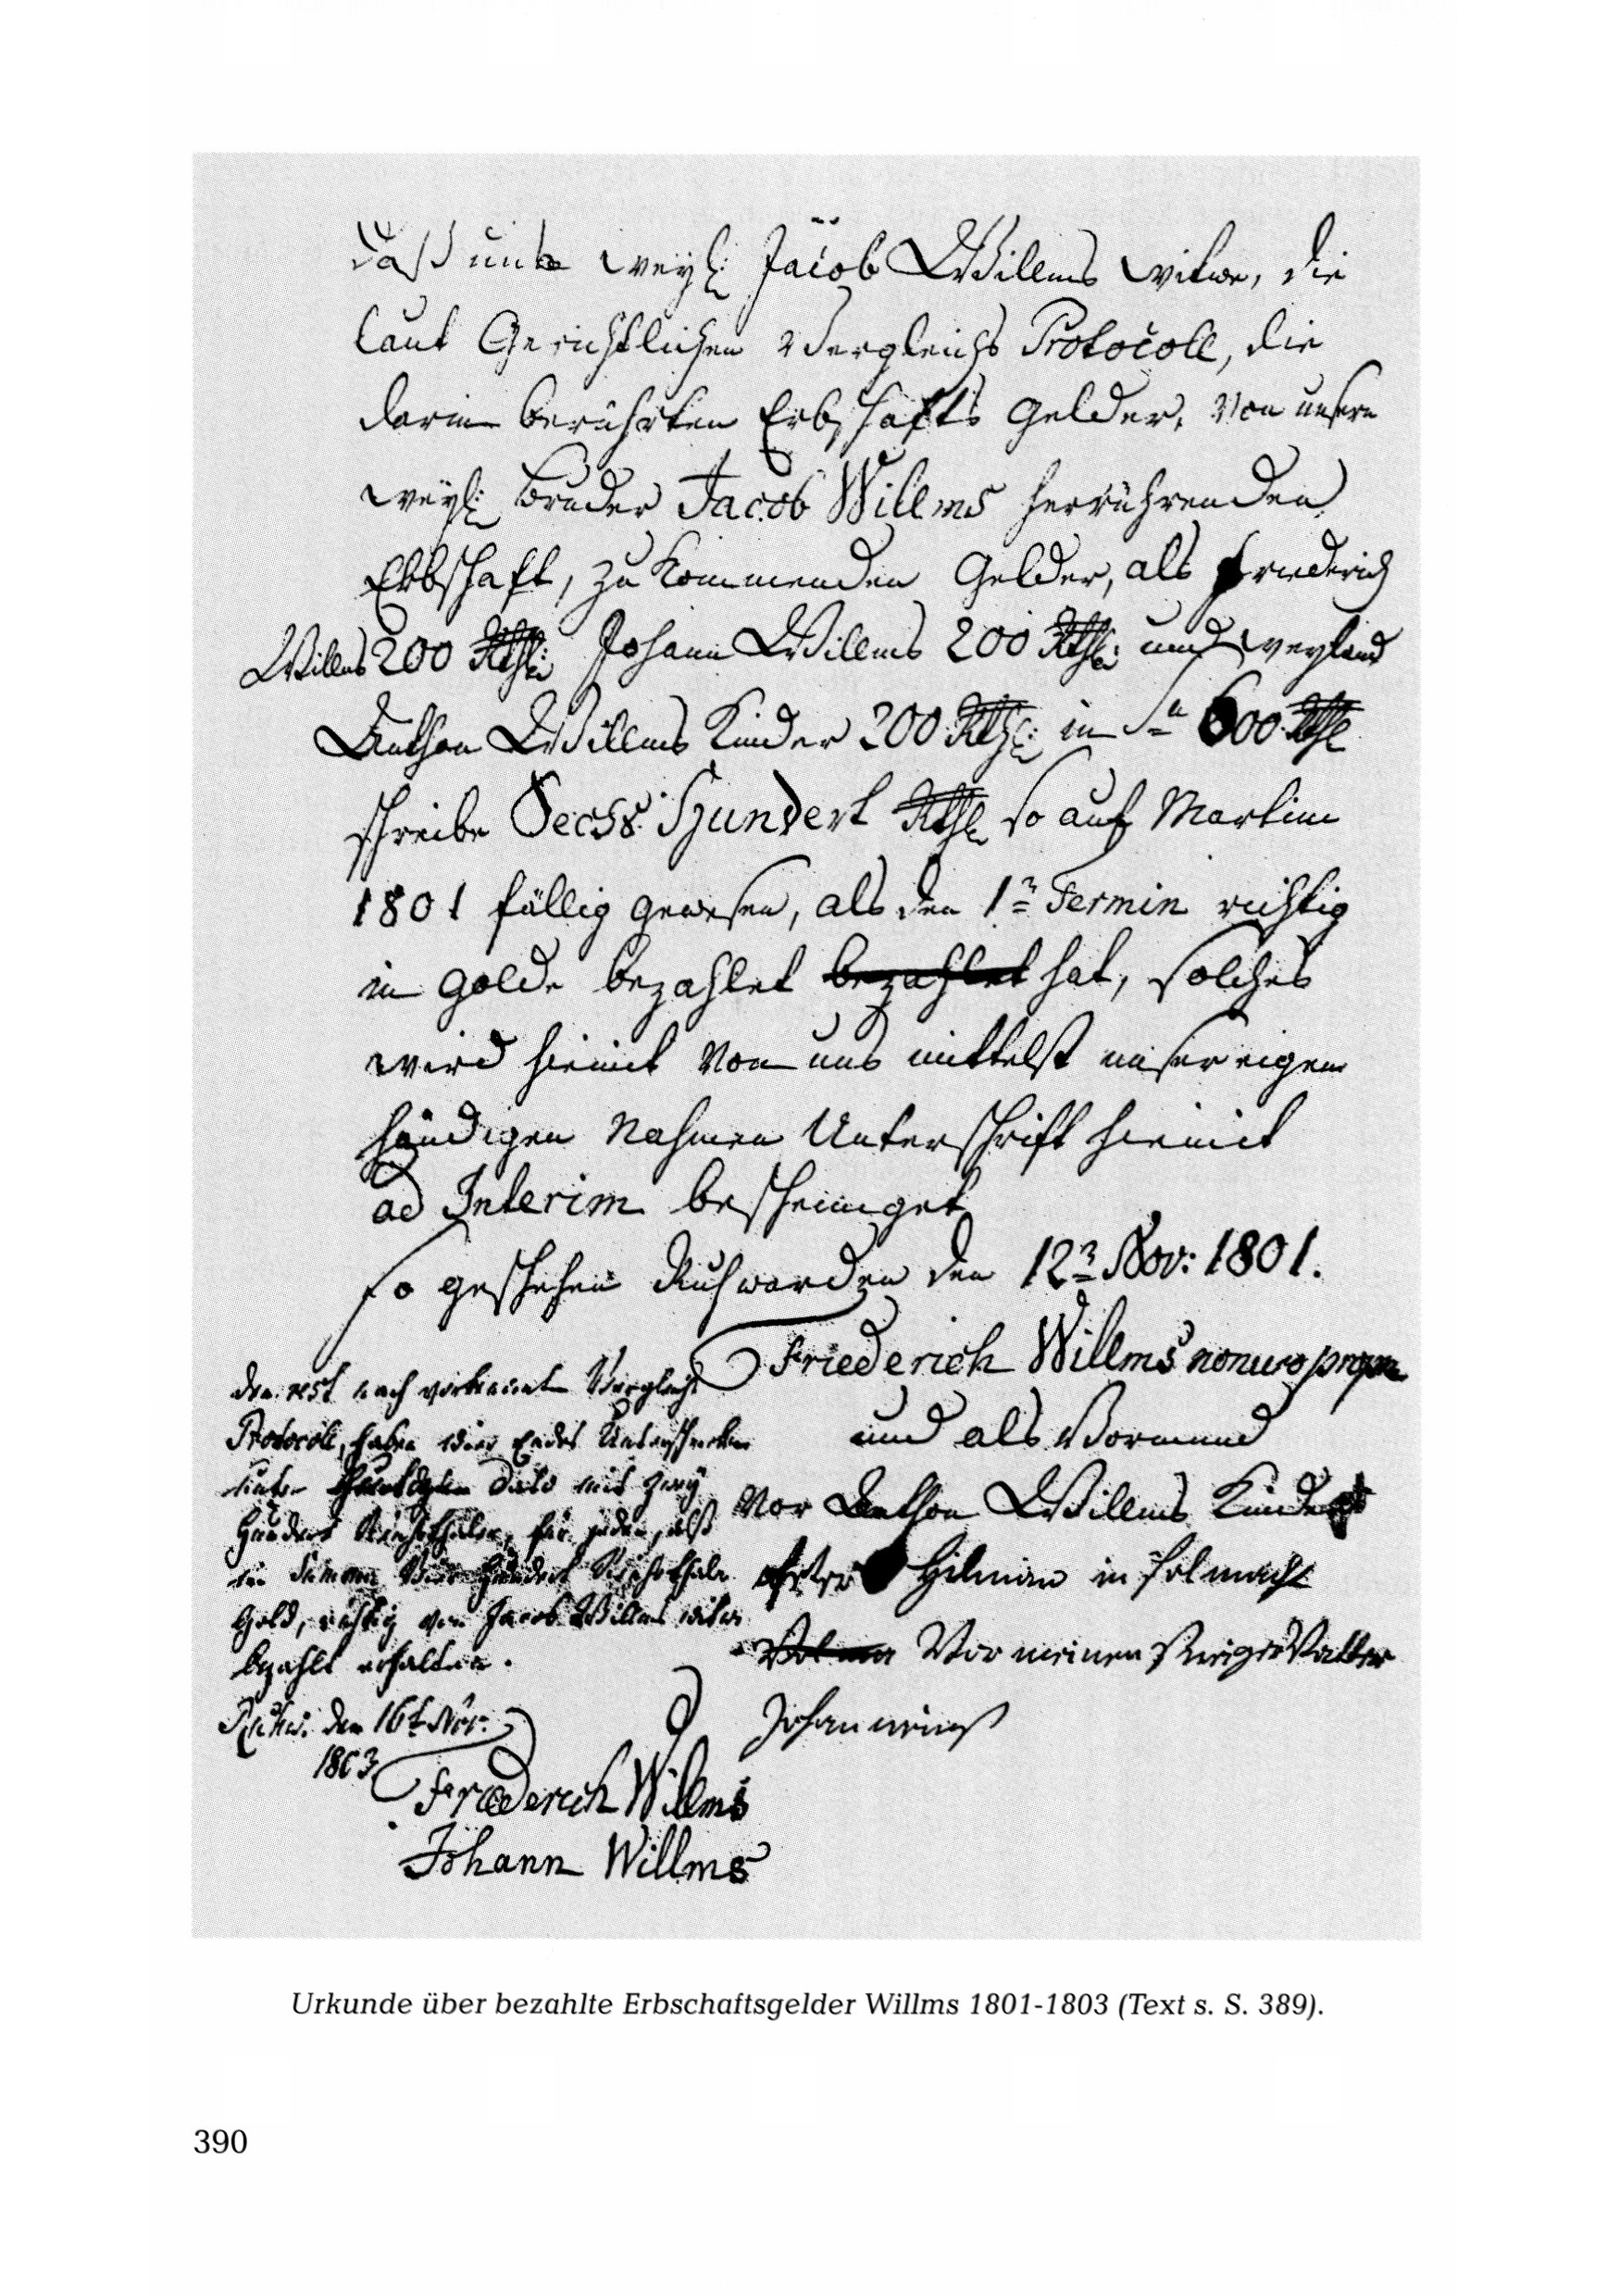 Daß uns weyl: Jacob Willms witwe, die
laut Gerichtlichen Vergleichs Protocoll, die
darin berührten Erbschafts Gelder, von unsern
weyl: bruder Jacob Willms herrührenden
Erbschaft, zu kommenden Gelder, als Friederich
Willms 200 Rthl: Johann Willms 200 Rthl: und weyland
Anthon Willms Kinder 200 Rthl: in Sa 600 Rthl
schreibe Sechs Hundert Rthl so auf Martini
1801 fällig gewesen, als den 1n Termin richtig
in golde bezahlet bezahlet hat, solches
wird hiemit von uns mittelst unser eigen
händigen Nahmen Unterschrift hiemit
ad Interim bescheiniget
so geschehen Ruhwarden den 12n Nov: 1801.
Friederich Willms
und als Vormund
vor Anthon Willms Kinder
Hilmian in folmacht
Vor meinen Swiger Vatter
Johan
den rest nach Vergleichs
Protocoll, haben wier Endes Unterschriebene
unter dato mit zwey
Hundert Reichsthaler, für jeden, also
in Summa Vier Hundert Reichsthaler
Gold, richtig von Jacob Willms witwe
bezahlt erhalten.
Ruhw. den 16t Nov.
1803
Friederich Willms
Johann Willms
Urkunde über bezahlte Erbschaftsgelder Willms 1801-1803 (Text s. S. 389).
390